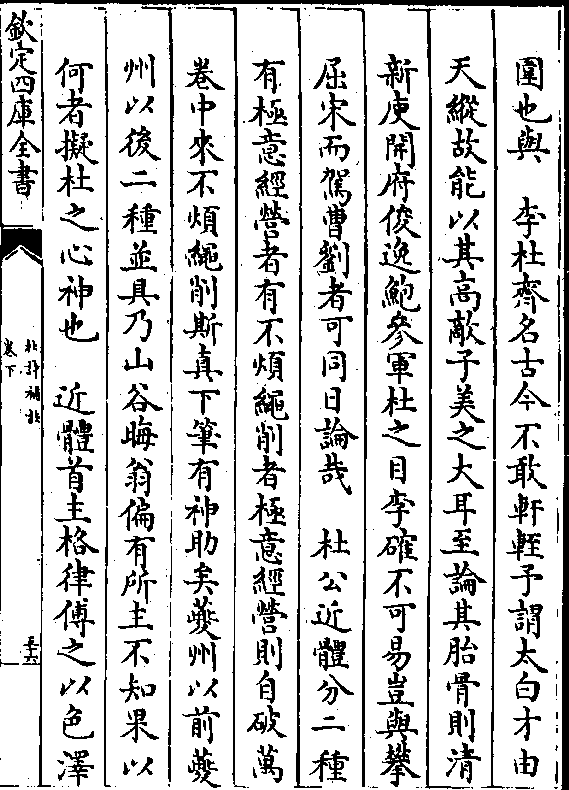 圍也與　李杜齊名古今不敢軒輊予謂太白才由
天縱故能以其高敵子美之大耳至論其胎骨則清
新庾開府俊逸鮑參軍杜之目李確不可易豈與攀
屈宋而駕曹劉者可同日論哉　杜公近體分二種
有極意經營者有不煩繩削者極意經營則自破萬
卷中來不煩繩削斯真下筆有神助矣夔州以前夔
州以後二種並具乃山谷晦翁偏有所主不知果以
何者擬杜之心神也　近體首主格律傅之以色澤
欽定四庫全書
卷下
五十六